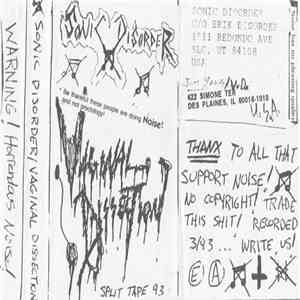 WARNING! Horrendous Noise!
SONIC DISORDER/VAGINAL DISSECTION
SONIC DISORDER
* Be thankful these people are doing Noise!
and not psychology!
VAGINAL
DISSECTION
SPLIT TAPE 93
SONIC DISORDER
C/O ERIK DISORDER
REDONDO AVE
SLC, UT 84108
USA
622 SIMONE TER
DES PLAINES, IL 60016-1818
U.S.A
THANX TO ALL THAT
SUPPORT NOISE!
NO COPYRIGHT! TRADE
THIS SHIT! RECORDED
3/93... WRITE US!
E A